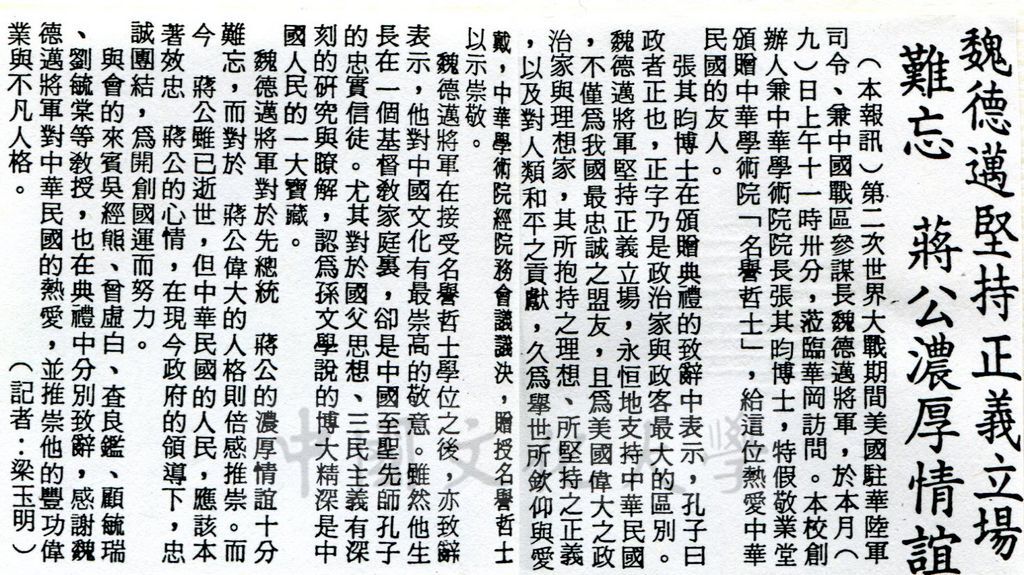 魏德邁堅持正義立場
難忘　蔣公濃厚情誼
（本報訊）第二次世界大戰期間美國駐華陸軍
司令、兼中國戰區參謀長魏德邁將軍，於本月（
九）日上午十一時卅分，蒞臨華岡訪問。本校創
辦人兼中華學術院院長張其昀博士，特假敬業堂
頒贈中華學術院「名譽哲士」，給這位熱愛中華
民國的友人。
張其昀博士在頒贈典禮的致辭中表示，孔子曰
政者正也，正字乃是政治家與政客最大的區別。
魏德邁將軍堅持正義立場，永恒地支持中華民國
，不僅爲我國最忠誠之盟友，且爲美國偉大之政
治家與理想家，其所抱持之理想、所堅持之正義
，以及對人類和平之貢獻，久爲學世所欽仰與愛
戴，中華學術院經院務會議議決，贈授名譽哲士
以示崇敬。
魏德邁將軍在接受名譽哲士學位之後，亦致辭
表示，他對中國文化有最崇高的敬意。雖然他生
長在一個基督教家庭裏，卻是中國至聖先師孔子
的忠實信徒。尤其對於國父思想、三民主義有深
刻的硏究與瞭解，認爲孫文學說的博大精深是中
國人民的一大寶藏。
魏德邁將軍對於先總統　蔣公的濃厚情誼十分
難忘，而對於　蔣公偉大的人格則倍感推崇。而
今　蔣公雖已逝世，但中華民國的人民，應該本
著效忠　蔣公的心情，在現今政府的領導下，忠
誠團結，爲開創國運而努力。
與會的來賓吳經熊、曾虛白、查良鑑、顧毓瑞
、劉毓棠等教授，也在典禮中分別致辭，感謝魏
德邁將軍對中華民國的熱愛，並推崇他的豐功偉
業與不凡人格。
（記者：梁玉明）
中國文化大學